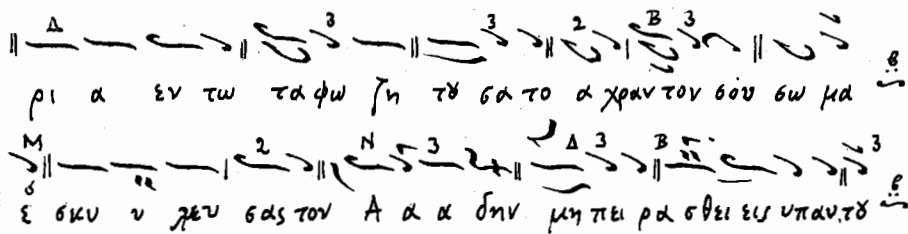 ρι α εν τω τα φω ζη τȣ σα το α χραν τον σου σω μα
ε σκυ υ λευ σας τον Α α α δην μη πει ρα σ θει εις υπ αυ τȣ